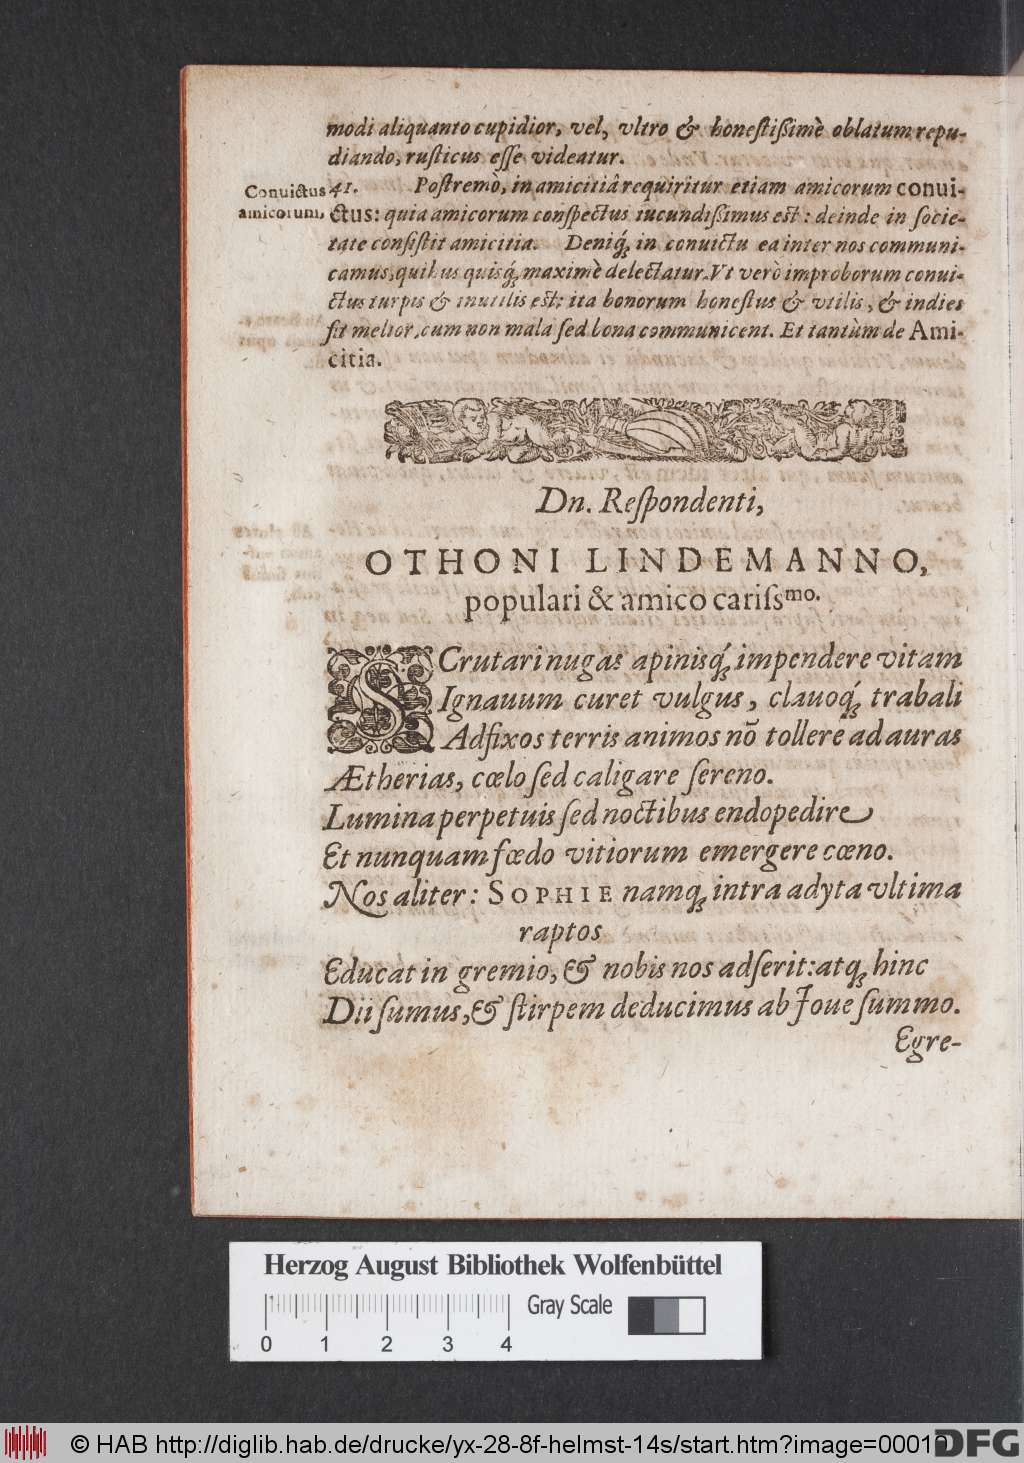 modi aliquanto cupidior, vel, vltro & honeſtißimè oblatum repu-
diando, ruſticus eſſe videatur.
Conuictus
amicorum,
41. Poſtremò, in amicitiâ requiritur etiam amicorum conui-
ctus: quia amicorum conſpectus iucundißimus eſt: deinde in ſocie-
tate conſiſtit amicitia. Deniq́ꝫ in conuictu ea inter nos communi-
camus, quibus quisq́ꝫ maximè delectatur. Vt verò improborum conui-
ctus turpis & inutilis eſt: ita bonorum honeſtus & vtilis, & indies
fit melior, cum non mala ſed bona communicent. Et tantùm de Ami-
citia.
Dn. Reſpondenti,
OTHONI LINDEMANNO,
populari & amico cariſsmo.
SCrutari nugas apinisq́ꝫ impendere vitam
Ignauum curet vulgus, clauoq́ꝫ trabali
Adfixos terris animos nō tollere ad auras
Ætherias, cœlo ſed caligare ſereno.
Lumina perpetuis ſed noctibus endopedire
Et nunquam fœdo vitiorum emergere cœno.
Nos aliter: SOPHIE namqꝫ intra adyta vltima
raptos
Educat in gremio, & nobis nos adſerit: atqꝫ hinc
Dii ſumus, & ſtirpem deducimus ab Joue ſummo.
Egre-
Herzog August Bibliothek Wolfenbüttel
Gray Scale
0 1 2 3 4
© HAB http://diglib.hab.de/drucke/yx-28-8f-helmst-14s/start.htm?image=00010
DFG